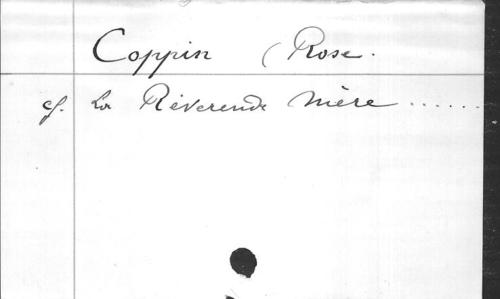 Coppin (Rose.
cf. La Réverende Mère ......